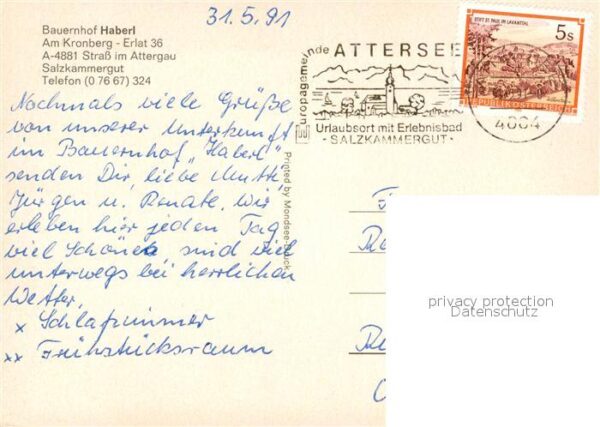 31.5.91
Bauernhof Haberl
Am Kronberg - Erlat 36
A-4881 Straß im Attergau
Salzkammergut
Telefon (0 76 67) 324
Nochmals viele Grüße
von unserer Unterkunft
im Bauernhof "Haberl"
senden Dir, liebe Mutti,
Jürgen u. Renate. Wir
erleben hier jeden Tag
viel Schönes sind viel
unterwegs bei herrlichen
Wetter.
x Schlafzimmer
xx Frühstücksraum
Printed by Mondsee-Druck
Europagemeinde
ATTERSEE
Urlaubsort mit Erlebnisbad
- SALZKAMMERGUT -
STIFT ST. PAUL IM LAVANTTAL
5s
REPUBLIK ÖSTERREICH
4864
privacy protection
Datenschutz